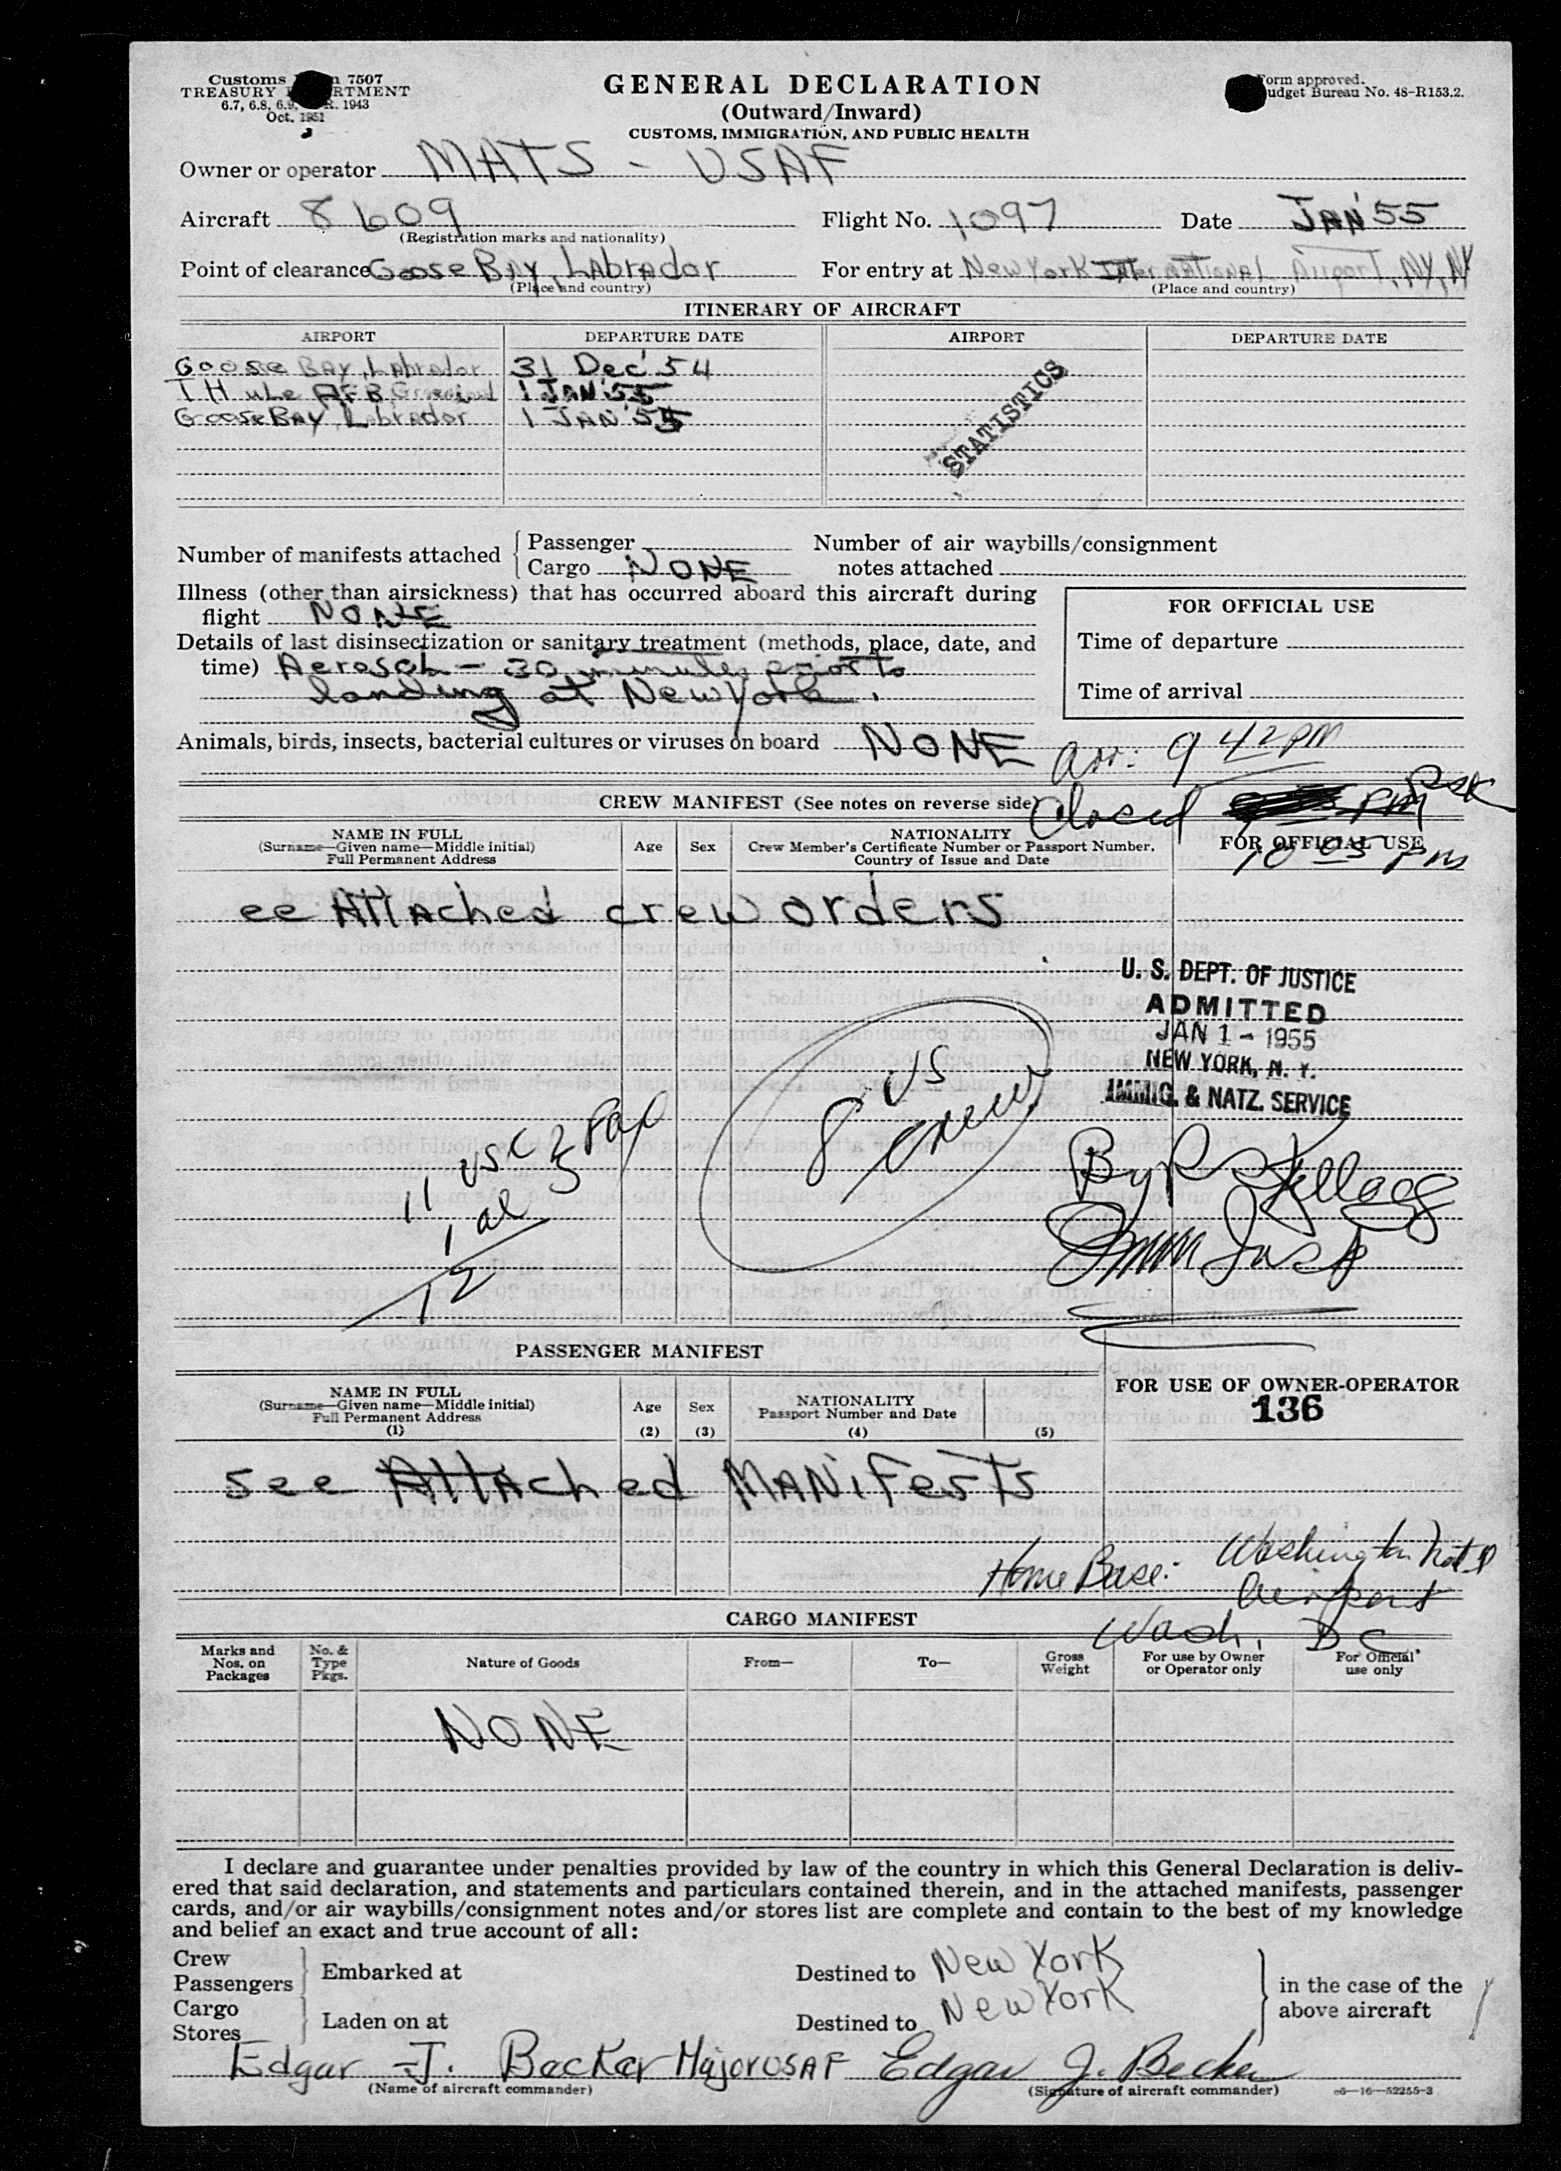 Customs 7507
TREASURY RTMENT
6.7, 6.8, 6.9, R. 1943
Oct. 1951
GENERAL DECLARATION
(Outward/Inward)
CUSTOMS, IMMIGRATION, AND PUBLIC HEALTH
Form approved.
Budget Bureau No. 48-R153.2.
Owner or operator MATS - USAF
Aircraft 8609 Flight No. 1097 Date JAN '55
(Registration marks and nationality)
Point of clearance Goose BAY, LAbrador For entry at New York International Airport, NY, NY
(Place and country) (Place and country)
ITINERARY OF AIRCRAFT
AIRPORT DEPARTURE DATE AIRPORT DEPARTURE DATE
Goose BAY, Labrador 31 Dec '54
THuLe AFB, Greenland 1 JAN '55
Goose BAY, Labrador 1 JAN '55
STATISTICS
Number of manifests attached Passenger Number of air waybills/consignment
Cargo NONE notes attached
Illness (other than airsickness) that has occurred aboard this aircraft during
flight NONE
FOR OFFICIAL USE
Time of departure
Time of arrival
Details of last disinsectization or sanitary treatment (methods, place, date, and
time) Aerosol - 30 minutes prior to
landing at New York.
Animals, birds, insects, bacterial cultures or viruses on board NONE
arr: 9 42 PM
closed PM
10 05 PM
CREW MANIFEST (See notes on reverse side)
NAME IN FULL
(Surname—Given name—Middle initial)
Full Permanent Address
Age Sex
NATIONALITY
Crew Member's Certificate Number or Passport Number,
Country of Issue and Date
FOR OFFICIAL USE
ee Attached crew orders
U. S. DEPT. OF JUSTICE
ADMITTED
JAN 1 - 1955
NEW YORK, N. Y.
IMMIG. & NATZ. SERVICE
8 US
crew
11 USC
1 al
12
By R S Kellogg
Imm Insp
PASSENGER MANIFEST
NAME IN FULL
(Surname—Given name—Middle initial)
Full Permanent Address
(1)
Age
(2)
Sex
(3)
NATIONALITY
Passport Number and Date
(4) (5)
FOR USE OF OWNER-OPERATOR
136
see Attached MANifesTs
Home Base: Washington Nat'l
Airport
Wash, DC
CARGO MANIFEST
Marks and
Nos. on
Packages
No. &
Type
Pkgs.
Nature of Goods From— To—
Gross
Weight
For use by Owner
or Operator only
For Official
use only
NONE
I declare and guarantee under penalties provided by law of the country in which this General Declaration is deliv-
ered that said declaration, and statements and particulars contained therein, and in the attached manifests, passenger
cards, and/or air waybills/consignment notes and/or stores list are complete and contain to the best of my knowledge
and belief an exact and true account of all:
Crew
Passengers Embarked at Destined to New York
Cargo
Stores Laden on at Destined to New York
in the case of the
above aircraft
Edgar J. Becker Major USAF Edgar J. Becker
(Name of aircraft commander) (Signature of aircraft commander) c6—16—52255-3